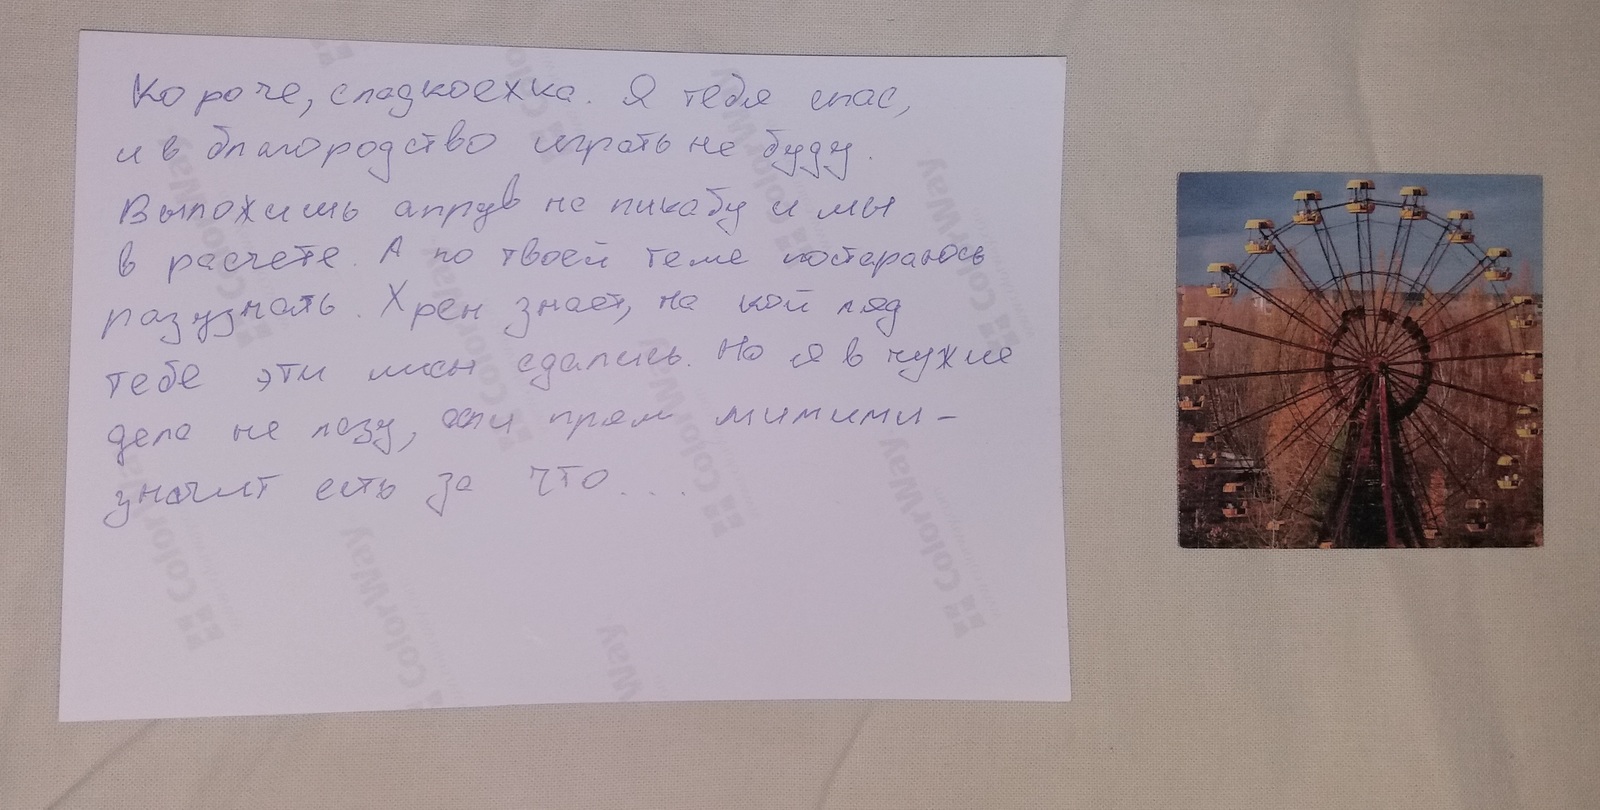 Короче, сладкоежка. Я тебя спас,
и в благородство играть не буду.
Выложишь апрув на пикабу и мы
в расчете. А по твоей теме постараюсь
разузнать. Хрен знает, на кой ляд
тебе эти лисы сдались. Но я в чужие
дела не лезу, если прям мимими -
значит есть за что....
ColorWay
ColorWay
ColorWay
ColorWay
ColorWay
ColorWay
ColorWay
ColorWay